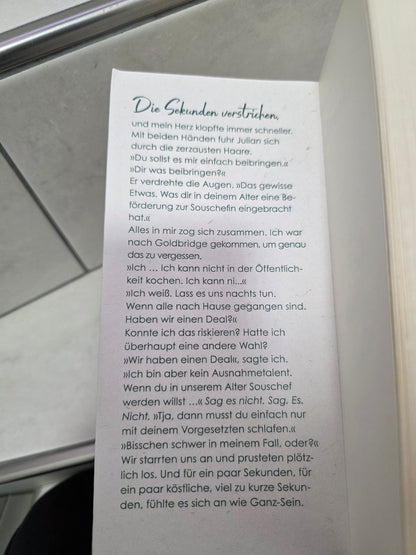 Die Sekunden verstrichen,
und mein Herz klopfte immer schneller.
Mit beiden Händen fuhr Julian sich
durch die zerzausten Haare.
»Du sollst es mir einfach beibringen.«
»Dir was beibringen?«
Er verdrehte die Augen. »Das gewisse
Etwas. Was dir in deinem Alter eine Be-
förderung zur Souschefin eingebracht
hat.«
Alles in mir zog sich zusammen. Ich war
nach Goldbridge gekommen, um genau
das zu vergessen.
»Ich ... Ich kann nicht in der Öffentlich-
keit kochen. Ich kann ni...«
»Ich weiß. Lass es uns nachts tun.
Wenn alle nach Hause gegangen sind.
Haben wir einen Deal?«
Konnte ich das riskieren? Hatte ich
überhaupt eine andere Wahl?
»Wir haben einen Deal«, sagte ich.
»Ich bin aber kein Ausnahmetalent.
Wenn du in unserem Alter Souschef
werden willst ...« Sag es nicht. Sag. Es.
Nicht. »Tja, dann musst du einfach nur
mit deinem Vorgesetzten schlafen.«
»Bisschen schwer in meinem Fall, oder?«
Wir starrten uns an und prusteten plötz-
lich los. Und für ein paar Sekunden, für
ein paar köstliche, viel zu kurze Sekun-
den, fühlte es sich an wie Ganz-Sein.